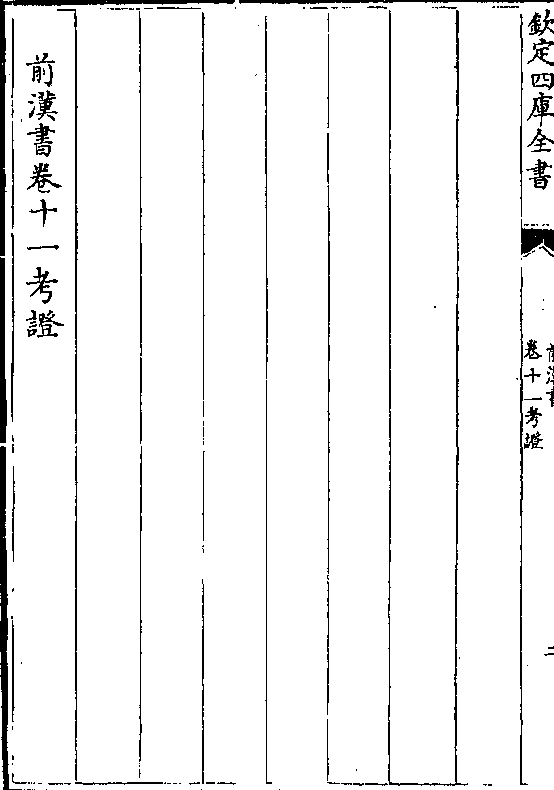 欽定四庫全書
前漢書
卷十一考證
二
前漢書卷十一考證